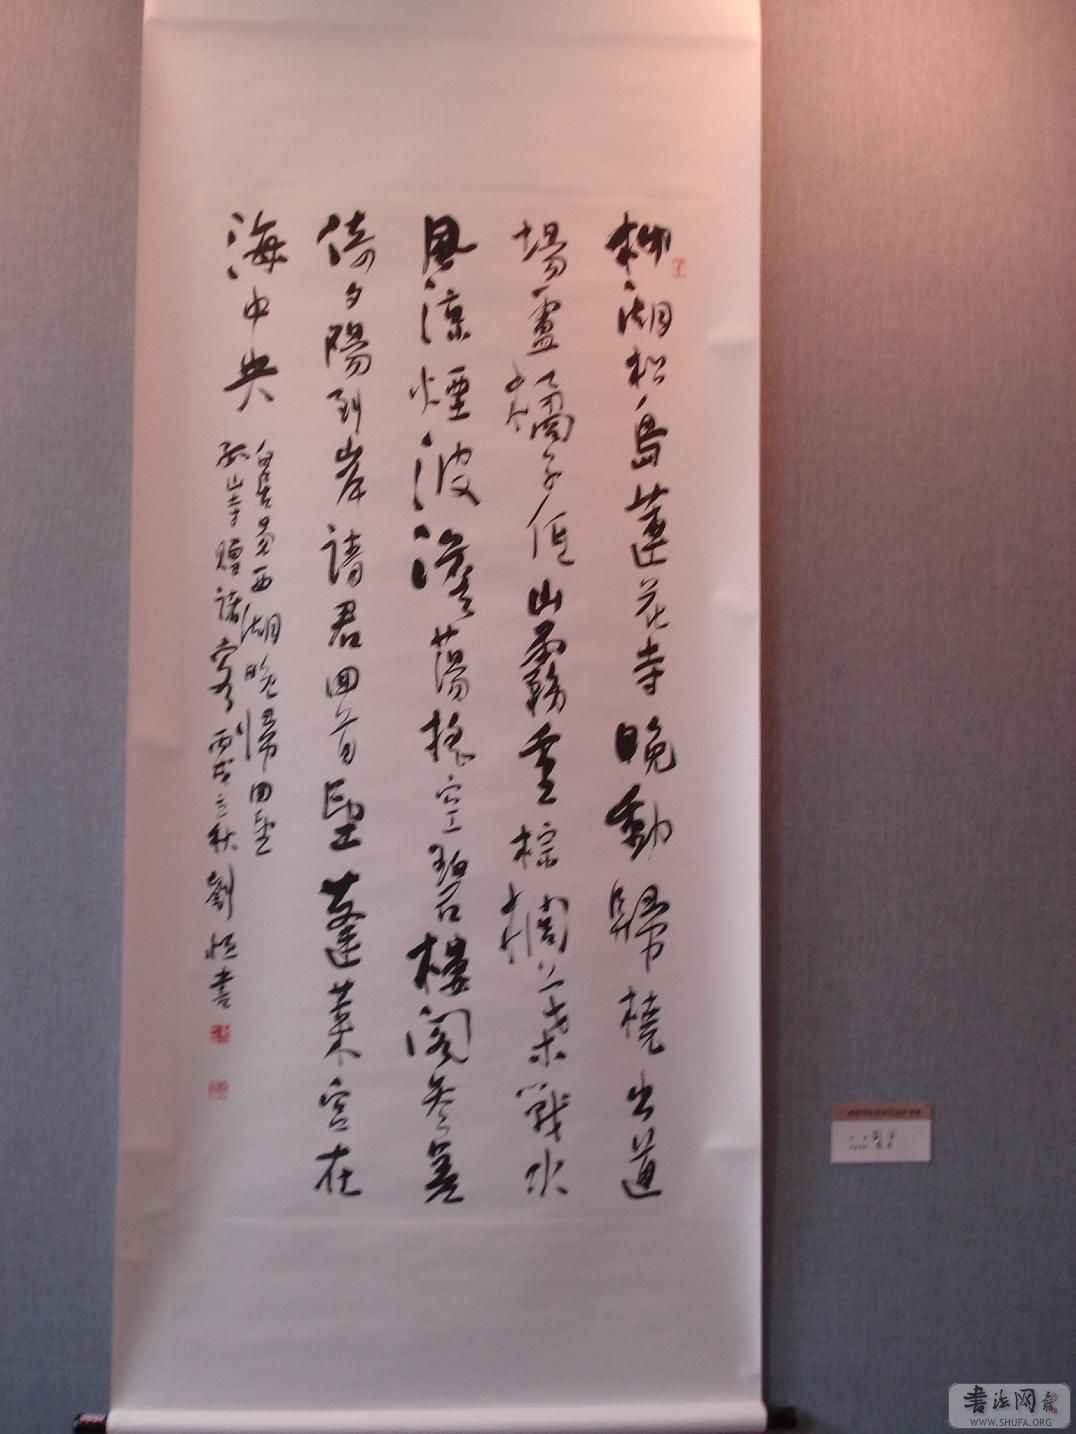 柳湖松島蓮花寺晚動歸橈出道
場盧橘子低山霧重棕櫚葉戰水
風涼煙波澹蕩搖空碧樓閣參差
倚夕陽到岸請君回首望蓬萊宮在
海中央
白居易西湖晚歸回望
孤山寺贈諸客丙戌立秋劉恒書
書法网
WWW.SHUFA.ORG